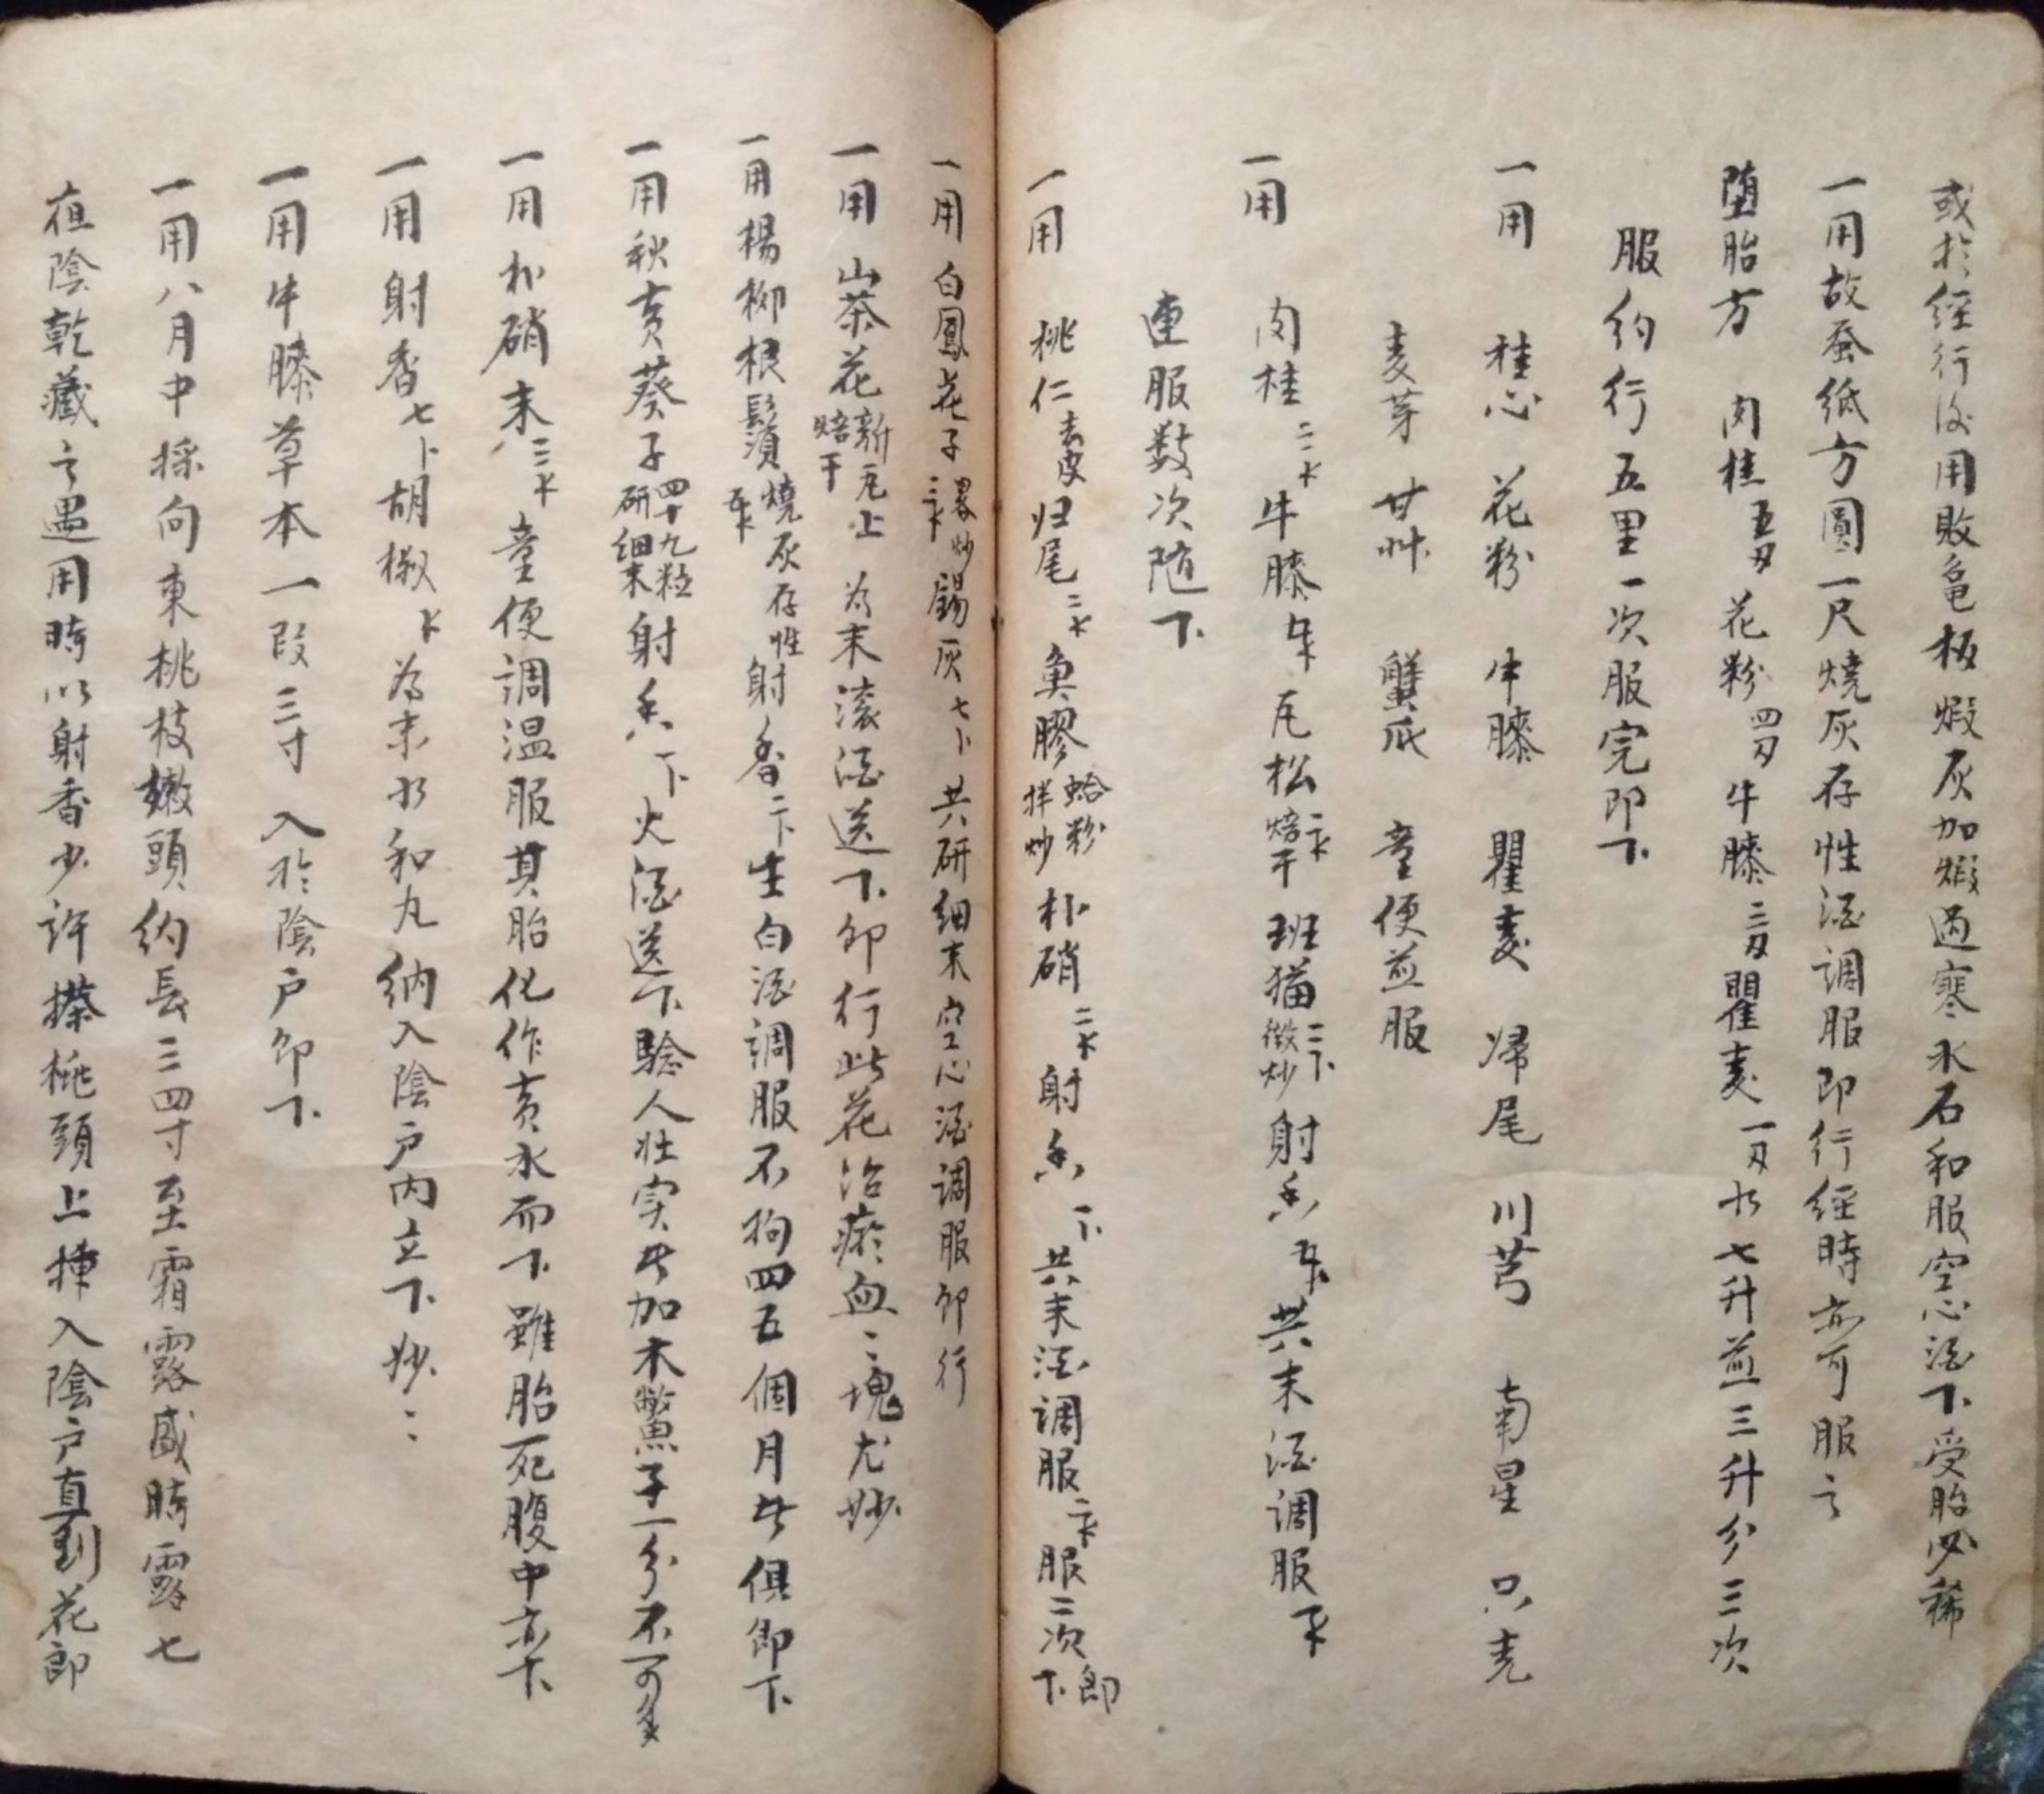 或於經行後用敗龜板煅灰加煅過寒水石和服空心酒下受胎必稀
一用故蚕纸方圓一尺燒灰存性酒調服即行經時亦可服之
堕胎方 肉桂五刄花粉四刄牛膝二刄瞿麦一刄水七升煎三升分三次
服約行五里一次服完即下
一用 桂心 花粉 牛膝 瞿麦 帰尾 川芎 南星 只壳
麦芽 甘艸 蟹爪 童便煎服
一用 肉桂 牛膝 瓦松焙干 班猫微炒射香 共末酒調服
連服数次随下
一用 桃仁去皮归尾 魚膠蛤粉拌炒朴硝 射香 共末酒調服 服二次即下
一用白鳳花子 炒錫灰 共研细末空心酒調服即行
一用山茶花新瓦上焙干為末滚酒送下即行此花治瘀血々塊尤妙
一用楊柳根鬚燒灰存性射香 生白酒調服不拘四五個月者俱即下
一用秋黄葵子四十九粒研细末射香 火酒送下驗人壮实者加木鱉子一分不可多
一用朴硝末 童便調温服其胎化作黄水而下雖胎死腹中亦下
一用射香 胡椒 為末水和丸納入陰户内立下妙々
一用牛膝草本一段三寸入於陰户即下
一用八月中採向東桃枝嫩頭約長三四寸至霜露盛時露七
夜陰乾藏之遇用時以射香少許搽桃頭上揷入陰户直到花即